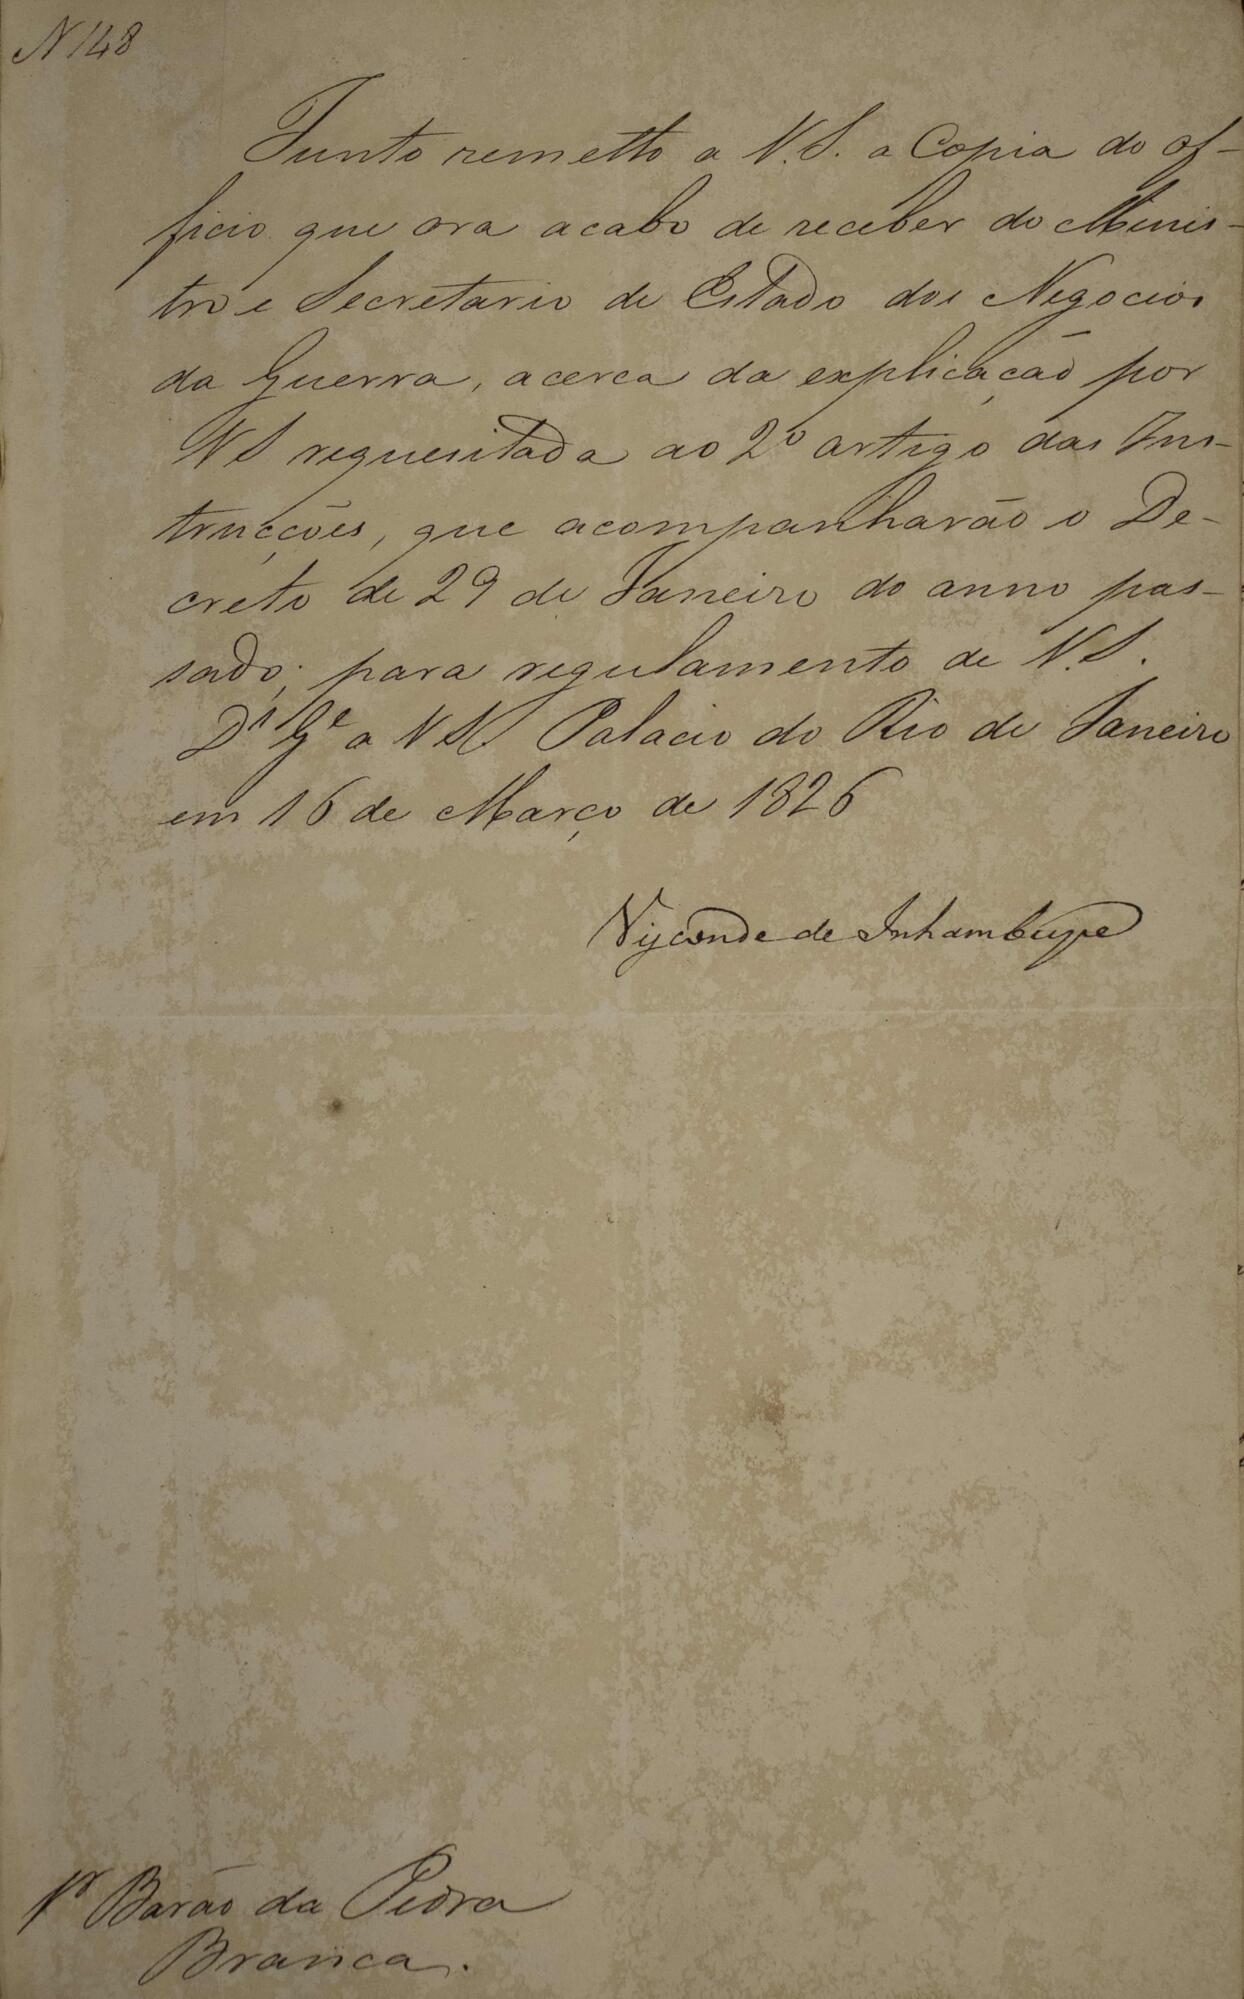 N 148
Junto remetto a V.S. a Copia do of-
ficio que ora acabo de receber do Minis-
tro e Secretario de Estado dos Negocios
da Guerra, acerca da explicação por
VS requesitada ao 2º artigo das Ins-
trucções, que acompanharão o De-
creto de 29 de Janeiro do anno pas-
sado; para regulamento de V.S.
Ds Ge a VS Palacio do Rio de Janeiro
em 16 de Março de 1826
Visconde de Inhambupe
Sr Barão da Pedra
Branca.